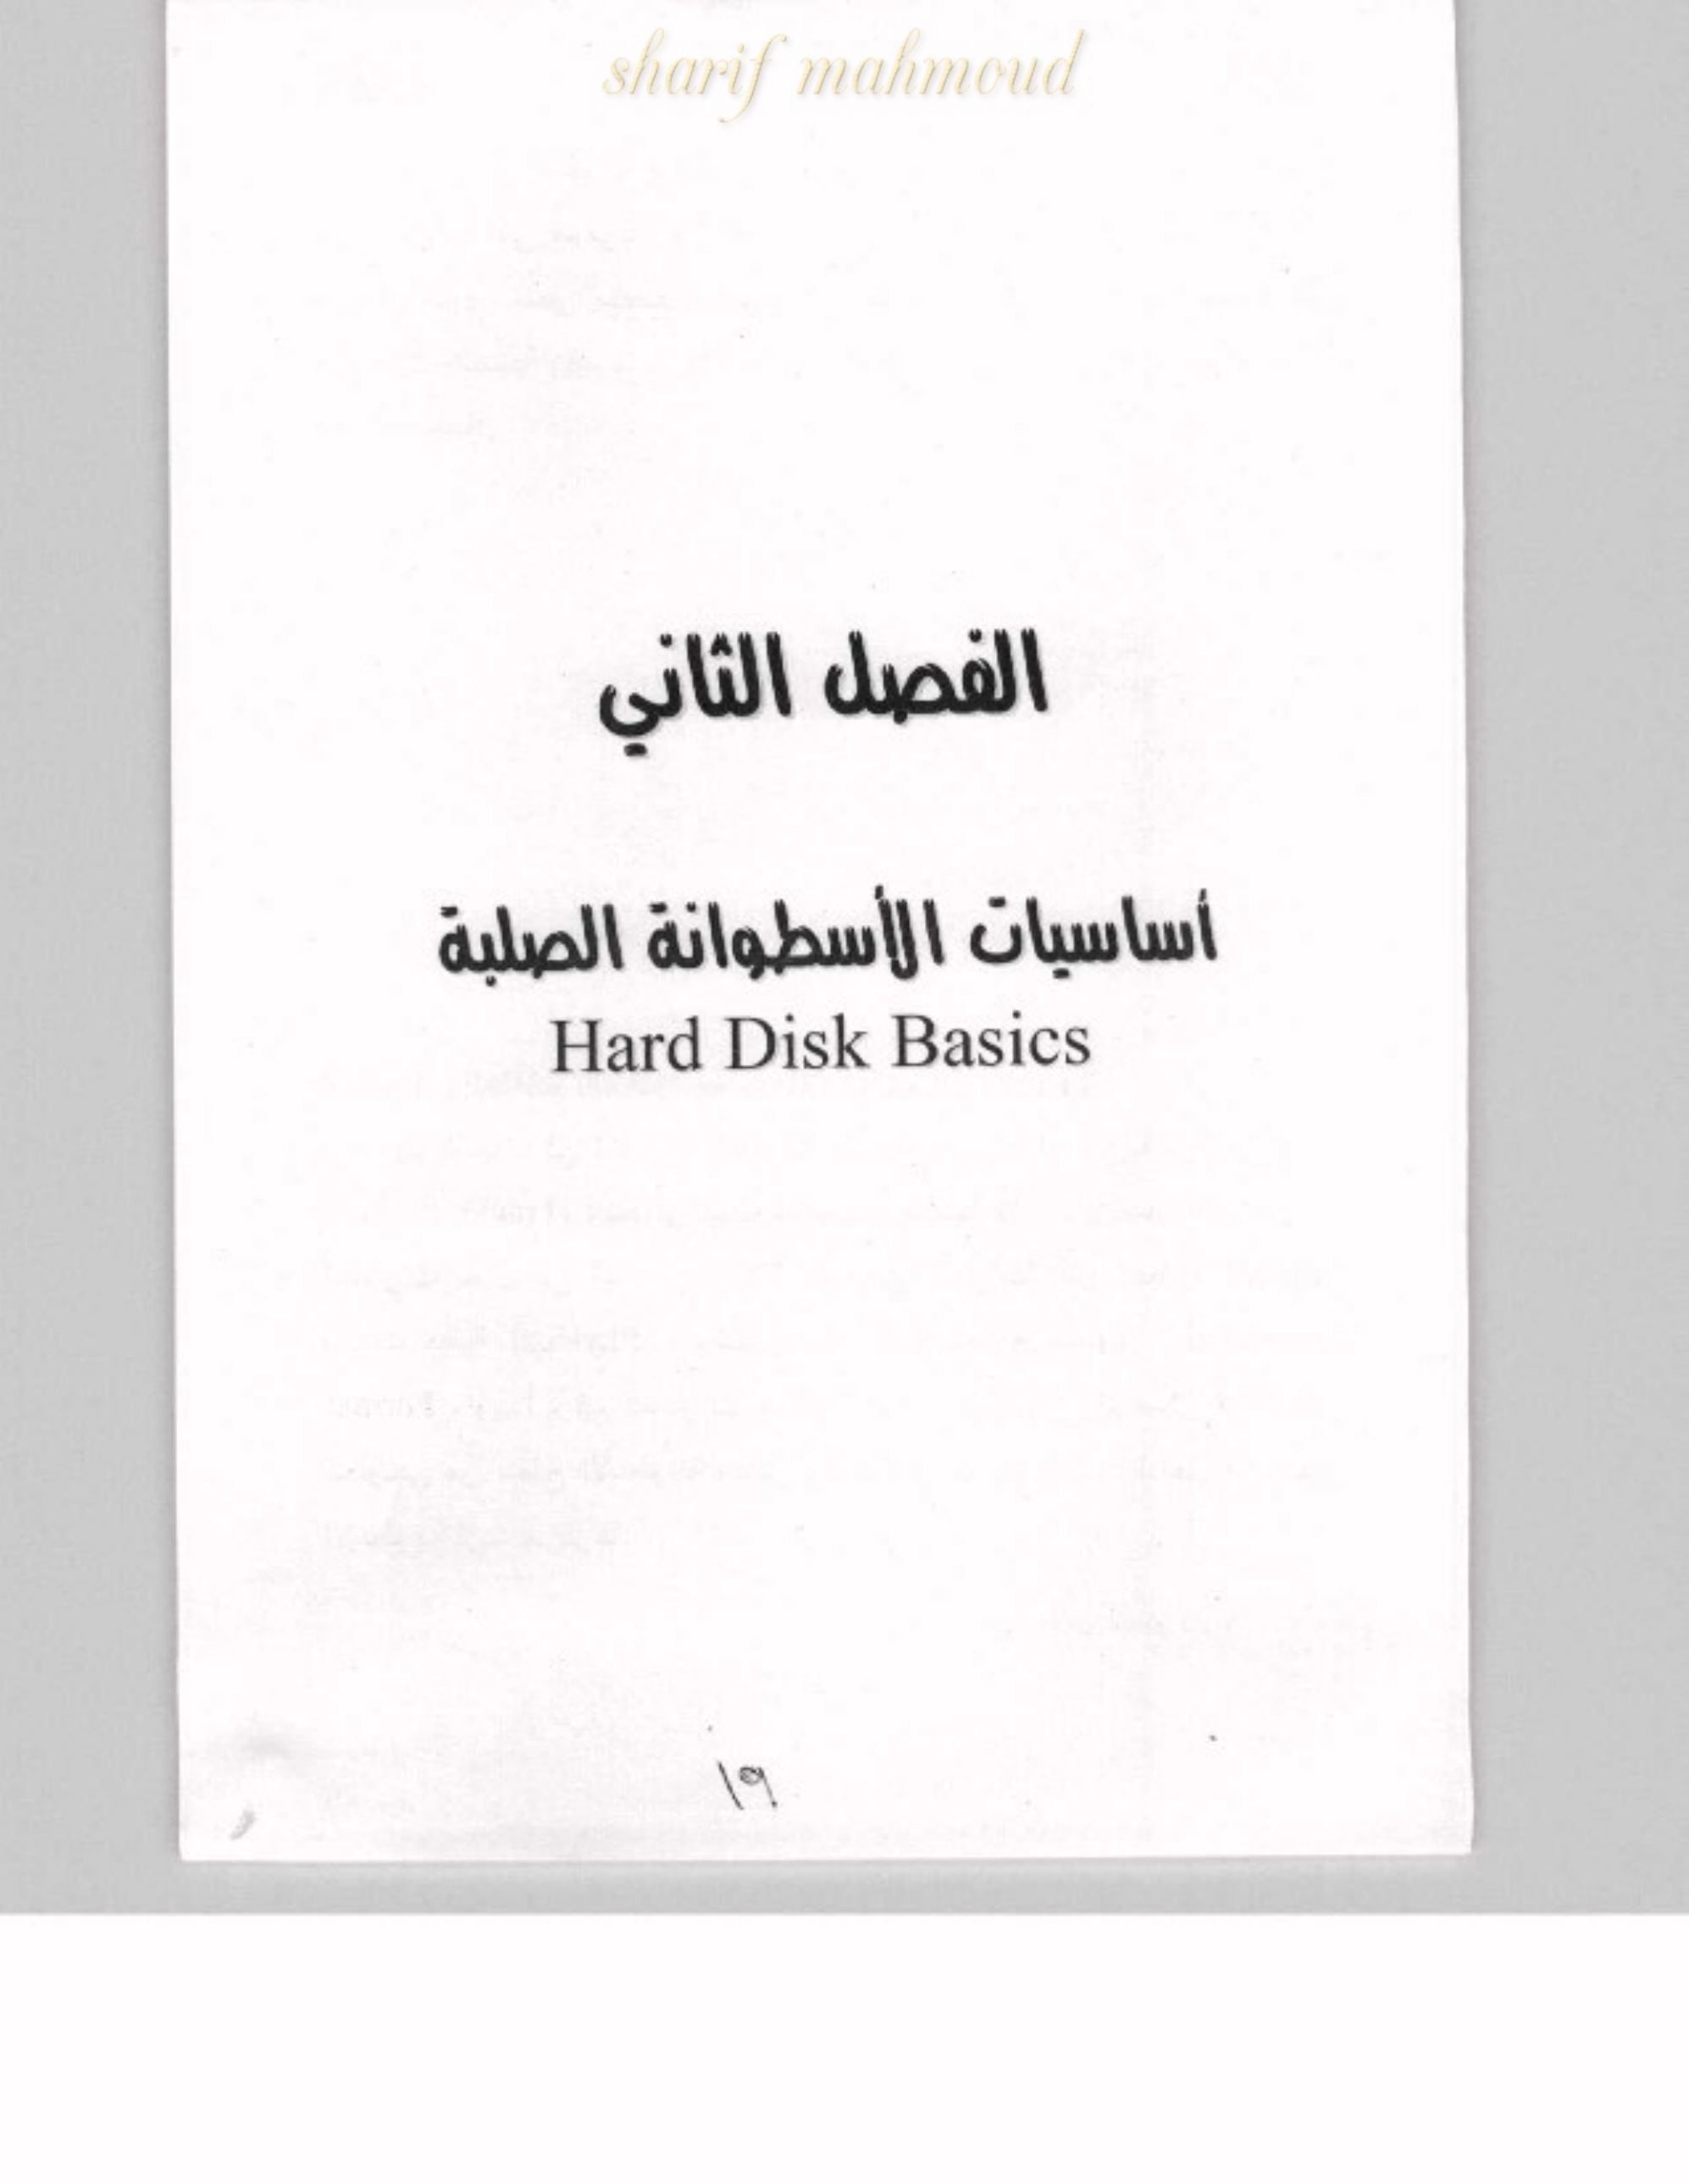 sharif mahmoud
الفصل الثاني
أساسيات الأسطوانة الصلبة
Hard Disk Basics
١٩